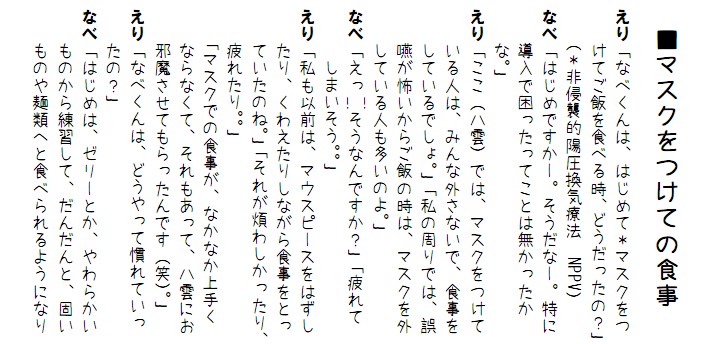 ■マスクをつけての食事
えり「なべくんは、はじめて＊マスクをつ
けてご飯を食べる時、どうだったの？」
（＊非侵襲的陽圧換気療法　NPPV）
なべ「はじめですかー。そうだなー。特に
導入で困ったってことは無かったか
な。」
えり「ここ（八雲）では、マスクをつけて
いる人は、みんな外さないで、食事を
しているでしょ。」「私の周りでは、誤
嚥が怖いからご飯の時は、マスクを外
している人も多いのよ。」
なべ「えっ！そうなんですか？」「疲れて
しまいそう。。」
えり「私も以前は、マウスピースをはずし
たり、くわえたりしながら食事をとっ
ていたのね。」「それが煩わしかったり、
疲れたり。。」
「マスクでの食事が、なかなか上手く
ならなくて、それもあって、八雲にお
邪魔させてもらったんです（笑）。」
えり「なべくんは、どうやって慣れていっ
たの？」
なべ「はじめは、ゼリーとか、やわらかい
ものから練習して、だんだんと、固い
ものや麺類へと食べられるようになり